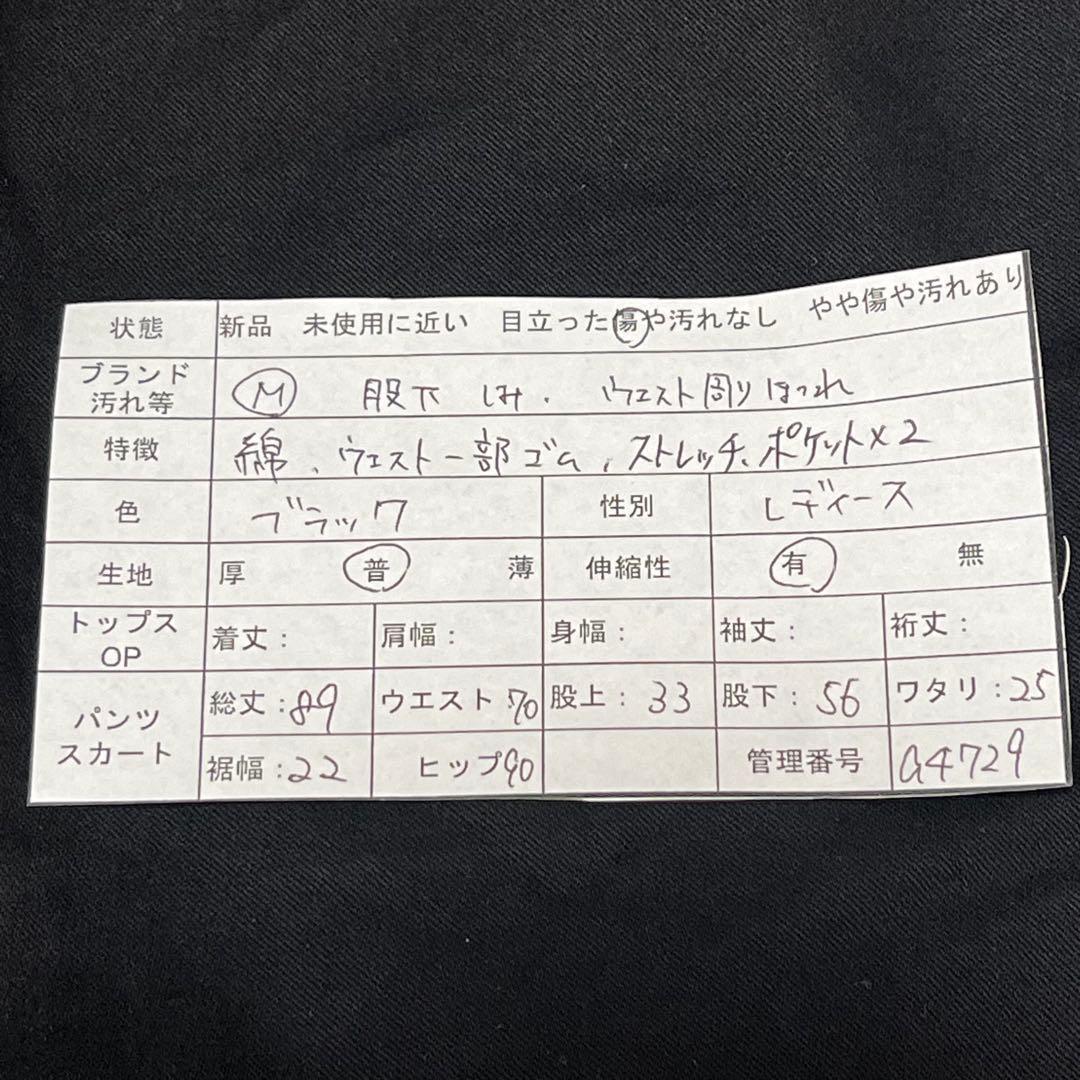 状態 新品 未使用に近い 目立った傷や汚れなし やや傷や汚れあり
ブランド 汚れ等 M 股下 しみ、 ウエスト周りほつれ
特徴 綿、ウエスト一部ゴム、ストレッチ、ポケット×2
色 ブラック 性別 レディース
生地 厚 普 薄 伸縮性 有 無
トップス OP 着丈: 肩幅: 身幅: 袖丈: 裄丈:
パンツ スカート 総丈:89 ウエスト70 股上:33 股下:56 ワタリ:25
裾幅:22 ヒップ90 管理番号 a4729